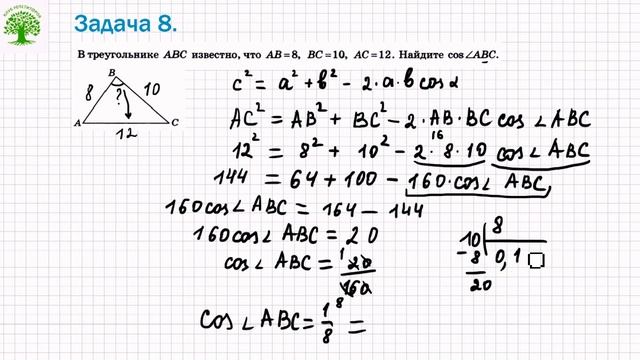 КЛУБ РЕПЕТИТОРОВ
Задача 8.
В треугольнике ABC известно, что AB = 8, BC = 10, AC = 12. Найдите cos∠ABC.
B
8 ? 10
A C
12
c² = a² + b² − 2·a·b cos α
AC² = AB² + BC² − 2·AB·BC cos∠ABC
16
12² = 8² + 10² − 2·8·10 cos∠ABC
144 = 64 + 100 − 160·cos∠ABC
160cos∠ABC = 164 − 144
160cos∠ABC = 20
cos∠ABC = 20/160
1
8
cos∠ABC = 1/8 =
10 | 8
− 8 | 0,1
20